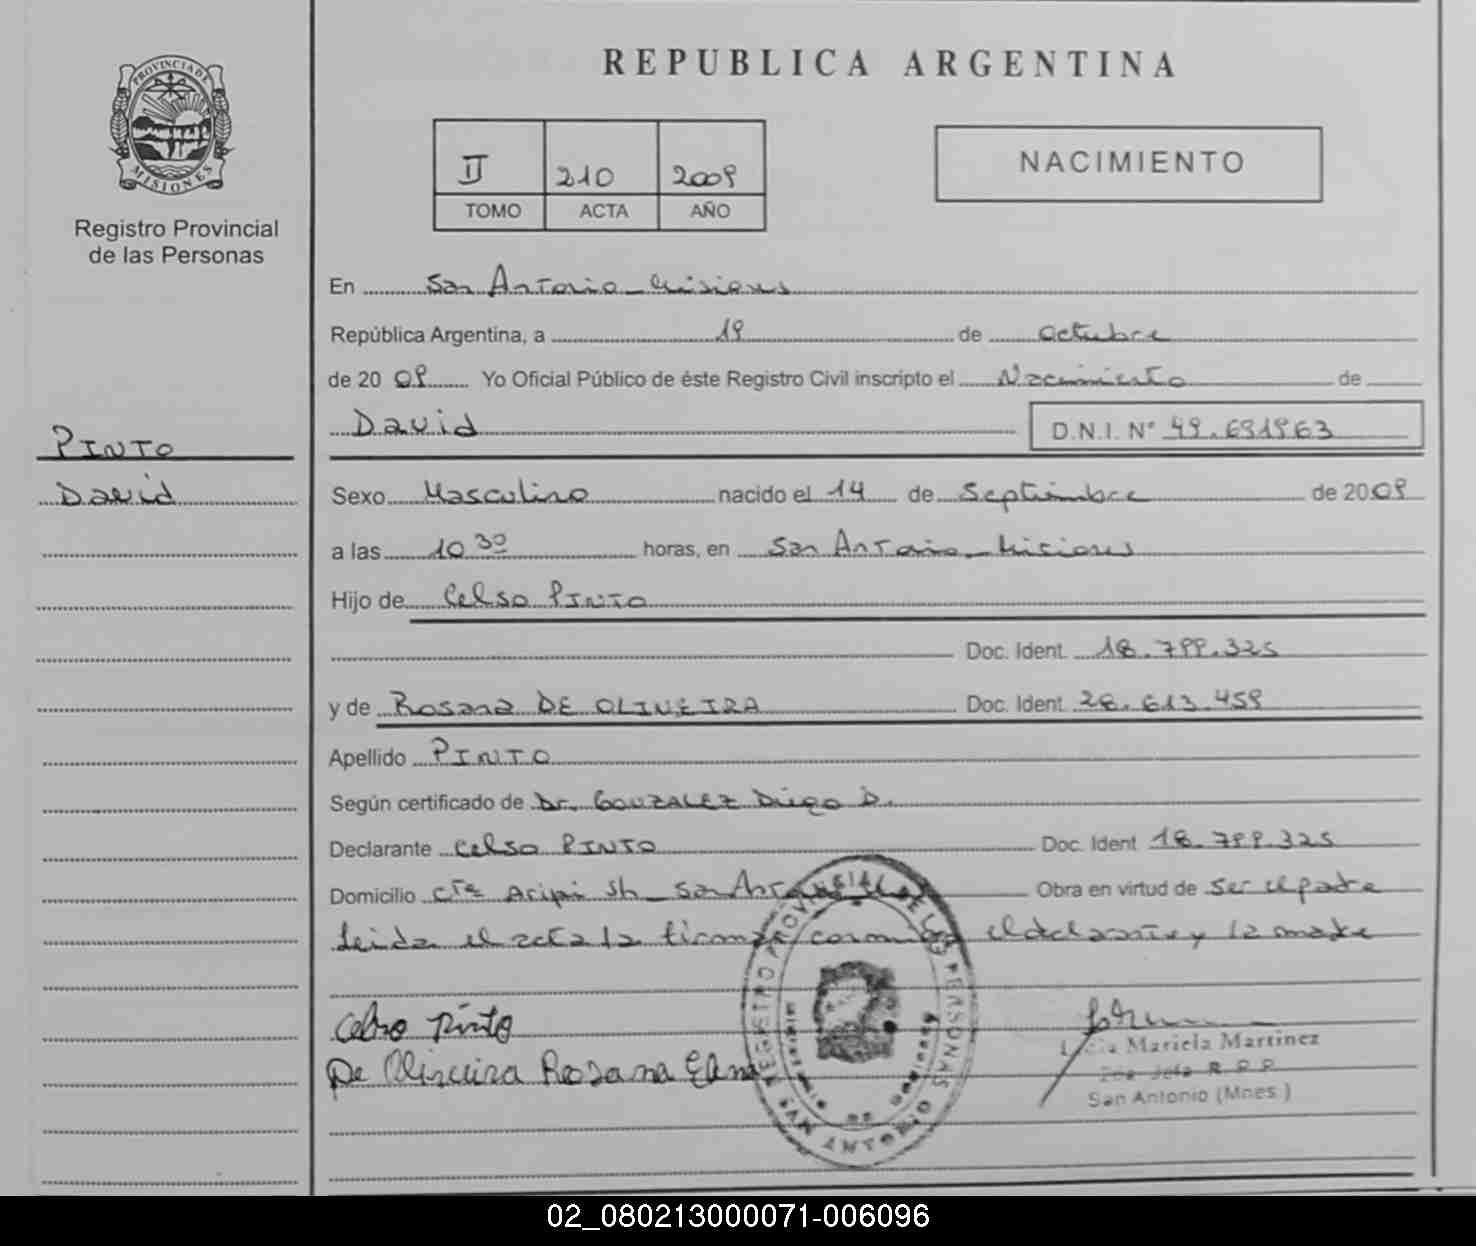 PROVINCIA DE
MISIONES
Registro Provincial
de las Personas
REPUBLICA ARGENTINA
II 210 2009
TOMO ACTA AÑO
NACIMIENTO
En San Antonio - Misiones
República Argentina, a 19 de Octubre
de 20 09 Yo Oficial Público de éste Registro Civil inscripto el Nacimiento de
David D.N.I. N° 49.691963
PINTO
David
Sexo Masculino nacido el 14 de Septiembre de 2009
a las 10 30 horas, en San Antonio - Misiones
Hijo de Celso PINTO
Doc. Ident. 18.799.325
y de Rosana DE OLIVEIRA Doc. Ident. 28.613.459
Apellido PINTO
Según certificado de Dr. GONZALEZ Diego D.
Declarante Celso PINTO Doc. Ident 18.799.325
Domicilio Cte Aripi sh - San Antonio Obra en virtud de Ser el padre
Leida el acta la firman conmigo el declarante y la madre
Celso Pinto
De Oliveira Rosana Elena
REGISTRO PROVINCIAL DE LAS PERSONAS
SAN ANTONIO
Mariela Martinez
2da Jefa R.P.P.
San Antonio (Mnes.)
02_080213000071-006096